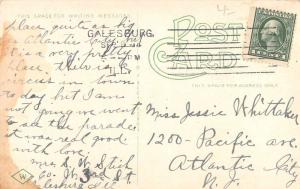 THIS SPACE FOR WRITING MESSAGES
POST CARD
GALESBURG,
ILL.
THIS SPACE FOR ADDRESS ONLY
place quite as big
as Atlantic City, but
it is a very pretty
place there is a
circus in town
to day but I am
not going we went
to see the parade
it was real good
with love.
Mrs S. W. Stich
60. W. 3rd St
Miss Jessie Whittaker
1200- Pacific ave
Atlantic City
N.J.
W